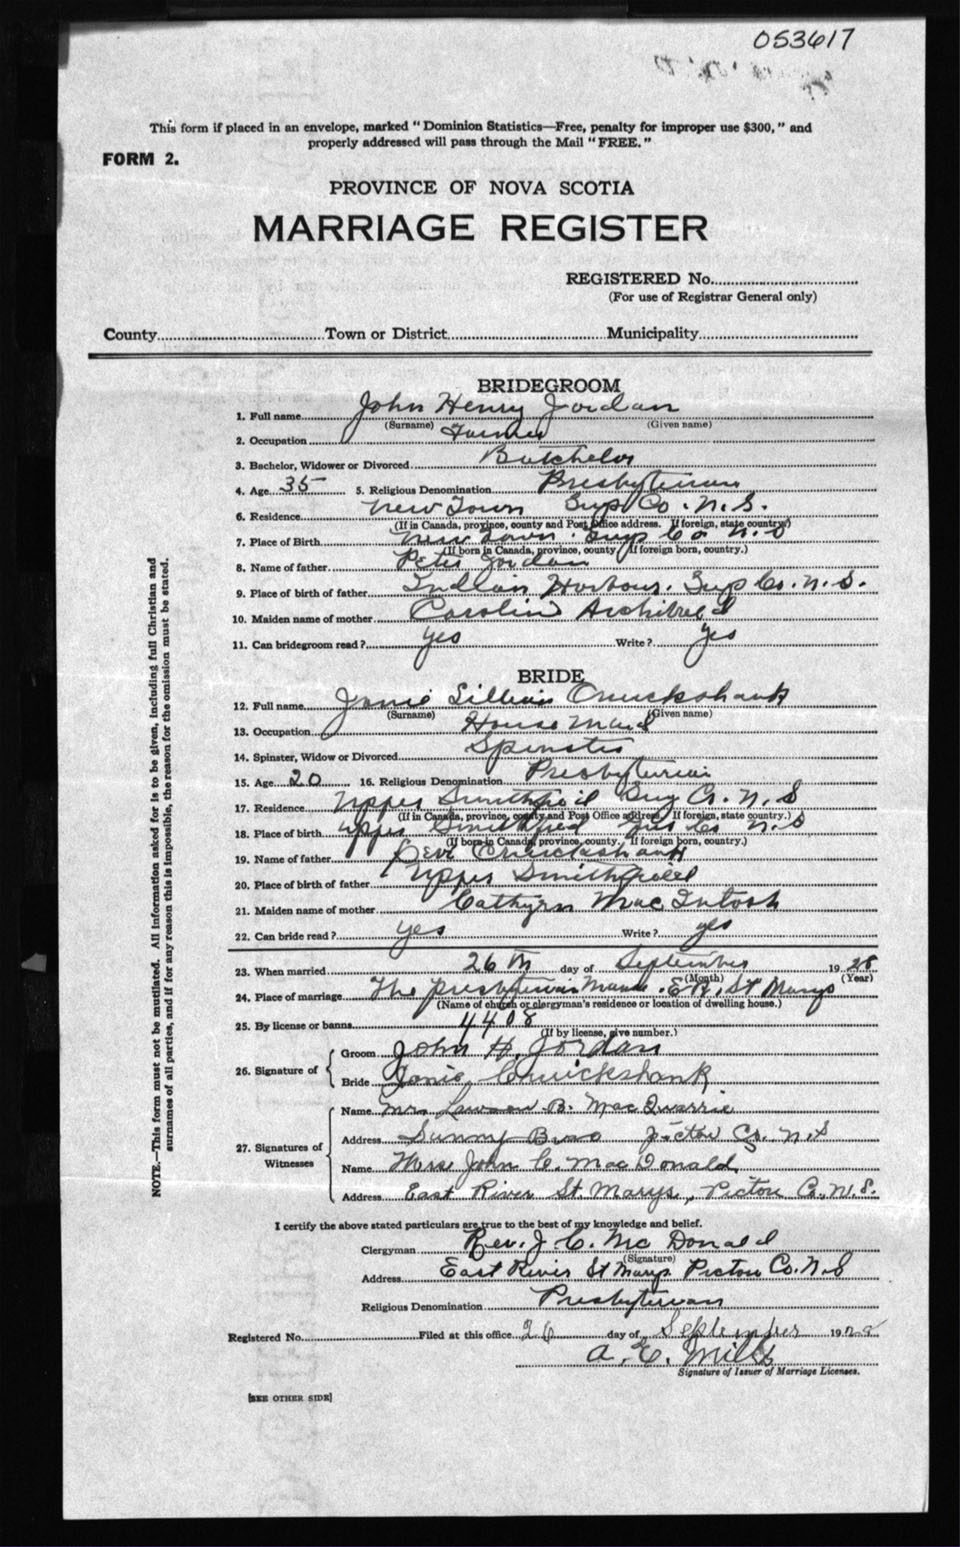 053617
This form if placed in an envelope, marked "Dominion Statistics—Free, penalty for improper use $300," and
properly addressed will pass through the Mail "FREE."
FORM 2.
PROVINCE OF NOVA SCOTIA
MARRIAGE REGISTER
REGISTERED No.
(For use of Registrar General only)
County Town or District Municipality
BRIDEGROOM
1. Full name John Henry Jordan
(Surname) (Given name)
2. Occupation Farmer
3. Bachelor, Widower or Divorced Batchelor
4. Age 35 5. Religious Denomination Presbyterian
6. Residence New Town Guys Co. N.S.
(If in Canada, province, county and Post Office address. If foreign, state country)
7. Place of Birth New Town Guys Co N.S
(If born in Canada, province, county If foreign born, country.)
8. Name of father Peter Jordan
9. Place of birth of father Indian Harbour. Guys Co. N.S.
10. Maiden name of mother Carolin Archibald
11. Can bridegroom read? yes Write? yes
BRIDE
12. Full name Janie Lillian Cruickshank
(Surname) (Given name)
13. Occupation House Maid
14. Spinster, Widow or Divorced Spinster
15. Age 20 16. Religious Denomination Presbyterian
17. Residence Upper Smithfield Guy Co. N.S
(If in Canada, province, county and Post Office address, If foreign, state country.)
18. Place of birth Upper Smithfield Guy Co N.S
(If born in Canada, province, county. If foreign born, country.)
19. Name of father Cruickshank
20. Place of birth of father Upper Smithfield
21. Maiden name of mother Cathyrn MacIntosh
22. Can bride read? yes Write? yes
23. When married 26th day of September 1928
(Month) (Year)
24. Place of marriage The Presbyterian Manse. E.R. St Marys
(Name of church or clergyman's residence or location of dwelling house.)
25. By license or banns 4408
(If by license, give number.)
26. Signature of
Groom John H. Jordan
Bride Janie Cruickshank
27. Signatures of Witnesses
Name Mrs Lawson B. MacQuarrie
Address Sunny Brae Pictou Co. N.S
Name Mrs John C. MacDonald
Address East River St. Marys, Pictou Co. N.S.
I certify the above stated particulars are true to the best of my knowledge and belief.
Clergyman Rev. J. C. McDonald
(Signature)
Address East River St Marys Pictou Co. N.S
Religious Denomination Presbyterian
Registered No. Filed at this office 26 day of September 1928
A. C. Mills
Signature of Issuer of Marriage Licenses.
[SEE OTHER SIDE]
NOTE.—This form must not be mutilated. All information asked for is to be given, including full Christian and
surnames of all parties, and if for any reason this is impossible, the reason for the omission must be stated.